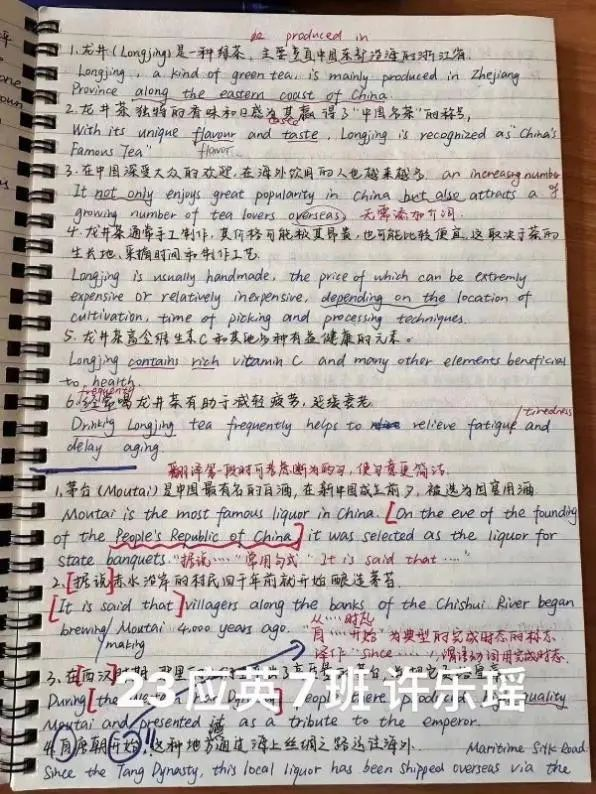 be produced in
1.龙井(Longjing)是一种绿茶,主要产自中国东部沿海的浙江省.
Longjing, a kind of green tea, is mainly produced in Zhejiang
Province along the eastern coast of China.
2.龙井茶独特的香味和口感为其赢得了"中国名茶"的称号,
taste
With its unique flavour and taste, Longjing is recognized as "China's
Famous Tea"
flavor
3.在中国深受大众的欢迎,在海外饮用的人也越来越多. an increasing number of
It not only enjoys great popularity in China but also attrats a
growing number of tea lovers overseas) 无需添加介词
4.龙井茶通常手工制作,其价格可能极其昂贵,也可能比较便宜.这取决于茶的
生长地、采摘时间和制作工艺.
Longjing is usually handmade, the price of which can be extremly
expensive or relatively inexpensive, depending on the location of
cultivation, time of picking and processing techniques.
5.龙井茶富含维生素C和其他多种有益健康的元素。
Longjing contains rich vitamin C and many other elements beneficial
to health.
frequently
6.经常喝龙井茶有助于减轻疲劳,延缓衰老.
tiredness
Drinking Longjing tea frequently helps to relieve fatigue and
delay aging.
翻译第一段时可考虑断为两句,使句意更简洁.
1.茅台(Moutai)是中国最有名的白酒,在新中国成立前夕,被选为国宴用酒
Moutai is the most famous liquor in China. [On the eve of the founding
of the People's Republic of China] it was selected as the liquor for
state banquets. "据说……"常用句式" It is said that …"
2.[据说]赤水沿岸的村民四千年前就开始酿造茅台.
[It is said that] villagers along the banks of the Chishui River began
brewing Moutai 4,000 years ago.
making
从……时起
自……开始"为典型的完成时态的标志
译作"since……",谓语动词用完成时态.
3.在[西汉]时期
23应英7班许乐瑶
During [the western Han Dynasty] people there quality
Moutai and presented it as a tribute to the emperor.
4.自唐朝开始,这种地方酒通过海上丝绸之路运往海外. Maritime Silk Road
Since the Tang Dynasty, this local liquor has been shipped overseas via the